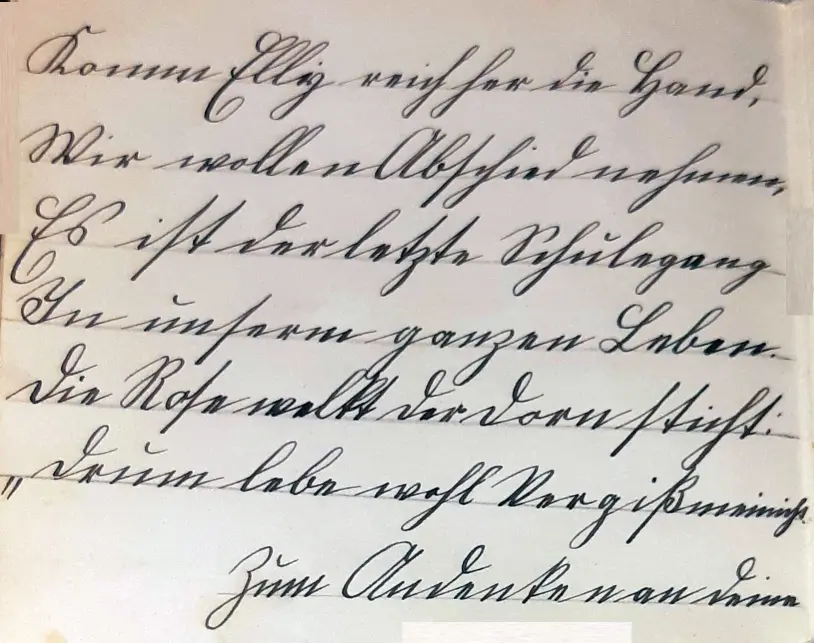 Komm Elly reich her die Hand,
Wir wollen Abschied nehmen,
Es ist der letzte Schulegang
In unserm ganzen Leben.
Die Rose welkt der Dorn sticht.
„Drum lebe wohl Vergißmeinnicht
Zum Andenken an deine